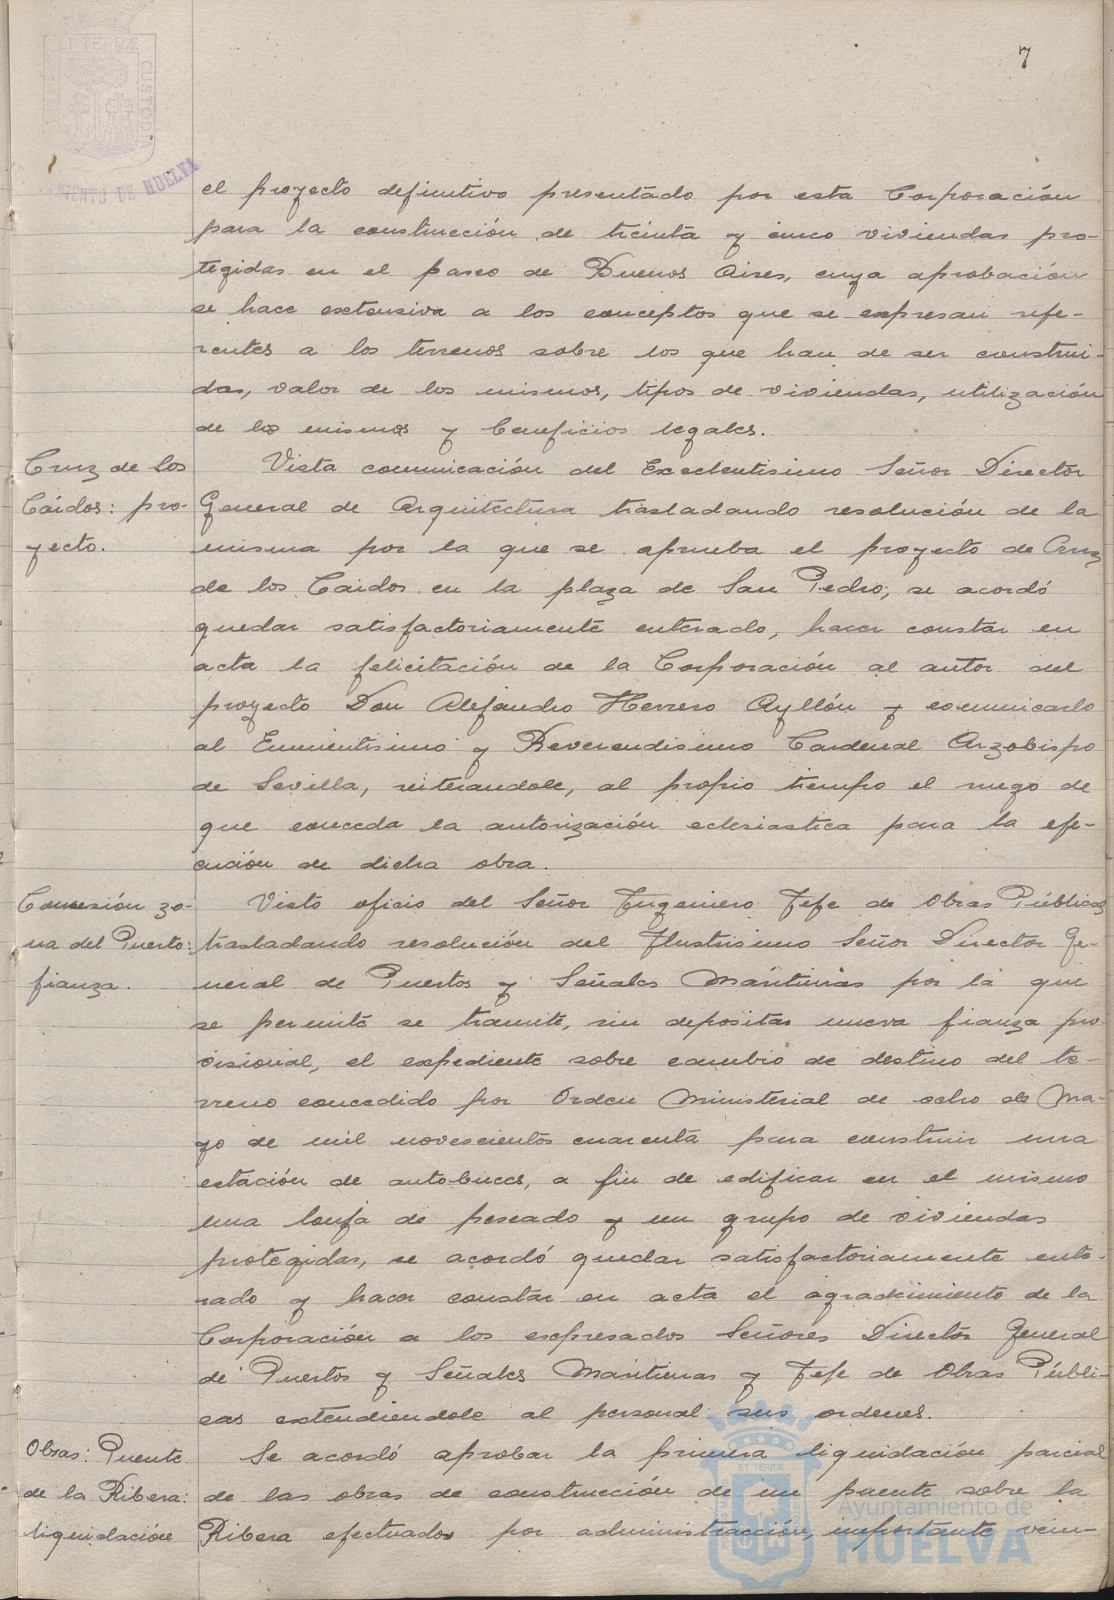 7
ET TERRÆ CUSTO
MIENTO DE HUELVA
el proyecto definitivo presentado por esta Corporación
para la construcción de treinta y cinco viviendas pro-
tegidas en el paseo de Buenos Aires, cuya aprobación
se hace extensiva a los conceptos que se expresan refe-
rentes a los terrenos sobre los que han de ser construi-
das, valor de los mismos, tipos de viviendas, utilización
de los mismos y beneficios legales.
Cruz de los
Caidos: pro-
yecto.
Vista comunicación del Excelentísimo Señor Director
General de Arquitectura trasladando resolución de la
misma por la que se aprueba el proyecto de Cruz
de los Caidos en la plaza de San Pedro; se acordó
quedar satisfactoriamente enterado, hacer constar en
acta la felicitación de la Corporación al autor del
proyecto Don Alejandro Herrero Ayllón y comunicarlo
al Eminentisimo y Reverendisimo Cardenal Arzobispo
de Sevilla, reiterandole, al propio tiempo el ruego de
que conceda la autorización eclesiastica para la eje-
cución de dicha obra.
Concesión zo-
na del Puerto:
fianza.
Visto oficio del Señor Ingeniero Jefe de Obras Públicas
trasladando resolución del Ilustrisimo Señor Director Ge-
neral de Puertos y Señales Marítimas por la que
se permite se tramite, sin depositar nueva fianza pro-
visional, el expediente sobre cambio de destino del te-
rreno concedido por Orden Ministerial de ocho de Ma-
yo de mil novescientos cuarenta para construir una
estación de autobuses, a fin de edificar en el mismo
una lonja de pescado y un grupo de viviendas
protegidas, se acordó quedar satisfactoriamente ente-
rado y hacer constar en acta el agradecimiento de la
Corporación a los expresados Señores Director General
de Puertos y Señales Marítimas y Jefe de Obras Públi-
cas extendiendole al personal sus ordenes.
Obras: Puente
de la Ribera:
liquidación
Se acordó aprobar la primera liquidación parcial
de las obras de construcción de un puente sobre la
Ribera efectuados por administracción, importante vein-
Ayuntamiento de
HUELVA